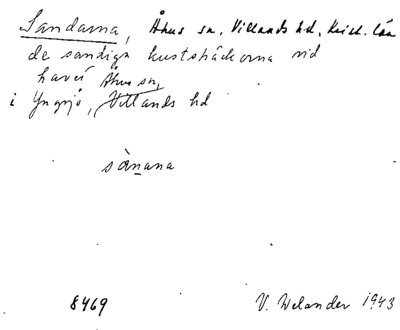 Sandarna, Åhus sn, Villands hd, Krist. län
de sandiga kuststräckorna vid
havet Åhus sn,
i Yngsjö, Villands hd
sànana
8469 V. Welander 1943